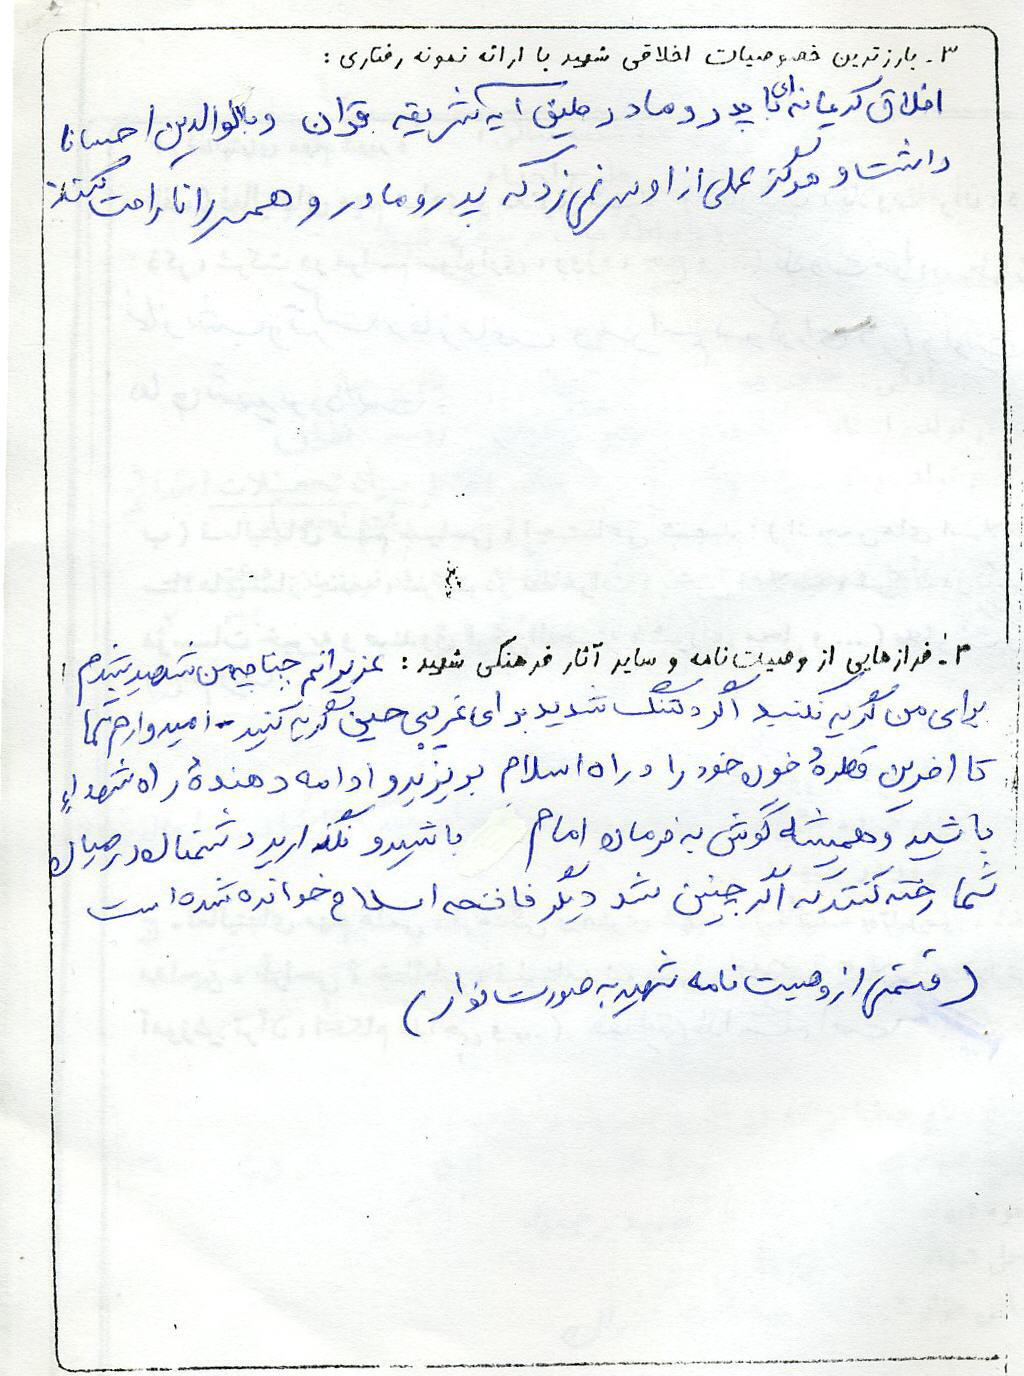 ۳ـ بارزترین خصوصیات اخلاقی شهید با ارائه نمونه رفتاری :
اخلاق کریمانه‌ای با پدر و مادر طبق آیه شریفه قرآن وبالوالدین احسانا
داشت و هرگز عملی از او سر نمی زد که پدر و مادر و همسر را ناراحت کند
۴ـ فرازهایی از وصیت‌نامه و سایر آثار فرهنگی شهید : عزیزانم چنانچه من شهید شدم
برای من گریه نکنید اگر دلتنگ شدید برای غریبی حسین گریه کنید - امیدوارم شما
تا آخرین قطرهٔ خون خود را در راه اسلام بریزید و ادامه دهندهٔ راه شهدا
باشید و همیشه گوش به فرمان امام باشید و نگذارید دشمنان در میان
شما رخنه کنند که اگر چنین شد دیگر فاتحه اسلام خوانده شده است
(قسمتی از وصیت نامه شهید به صورت نوار)